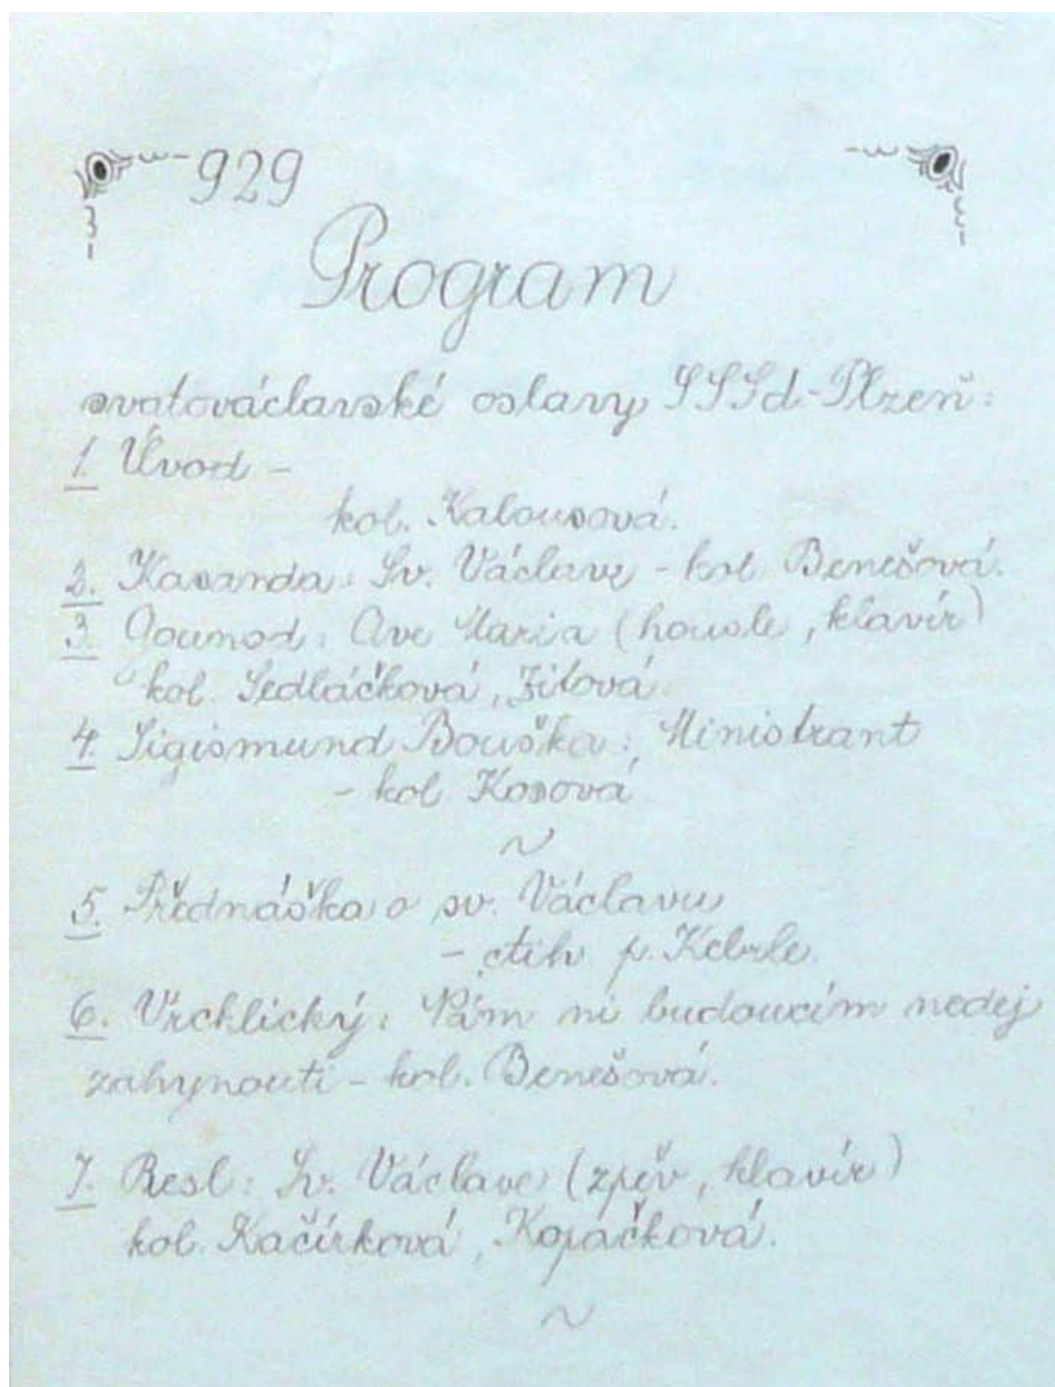 929
Program
svatováclavské oslavy SSSd-Plzeň:
1. Úvod -
kol. Kalousová.
2. Kasanda: Sv. Václave - kol. Benešová.
3. Gounod: Ave Maria (housle, klavír)
kol. Sedláčková, Žitová
4. Sigismund Bouška: Ministrant
- kol Kosová
~
5. Přednáška o sv. Václavu
- ctih p. Kebrle.
6. Vrchlický: Nám ni budoucím nedej
zahynouti - kol. Benešová.
7. Resl: Sv. Václave (zpěv, klavír)
kol. Kačírková, Kopáčková.
~